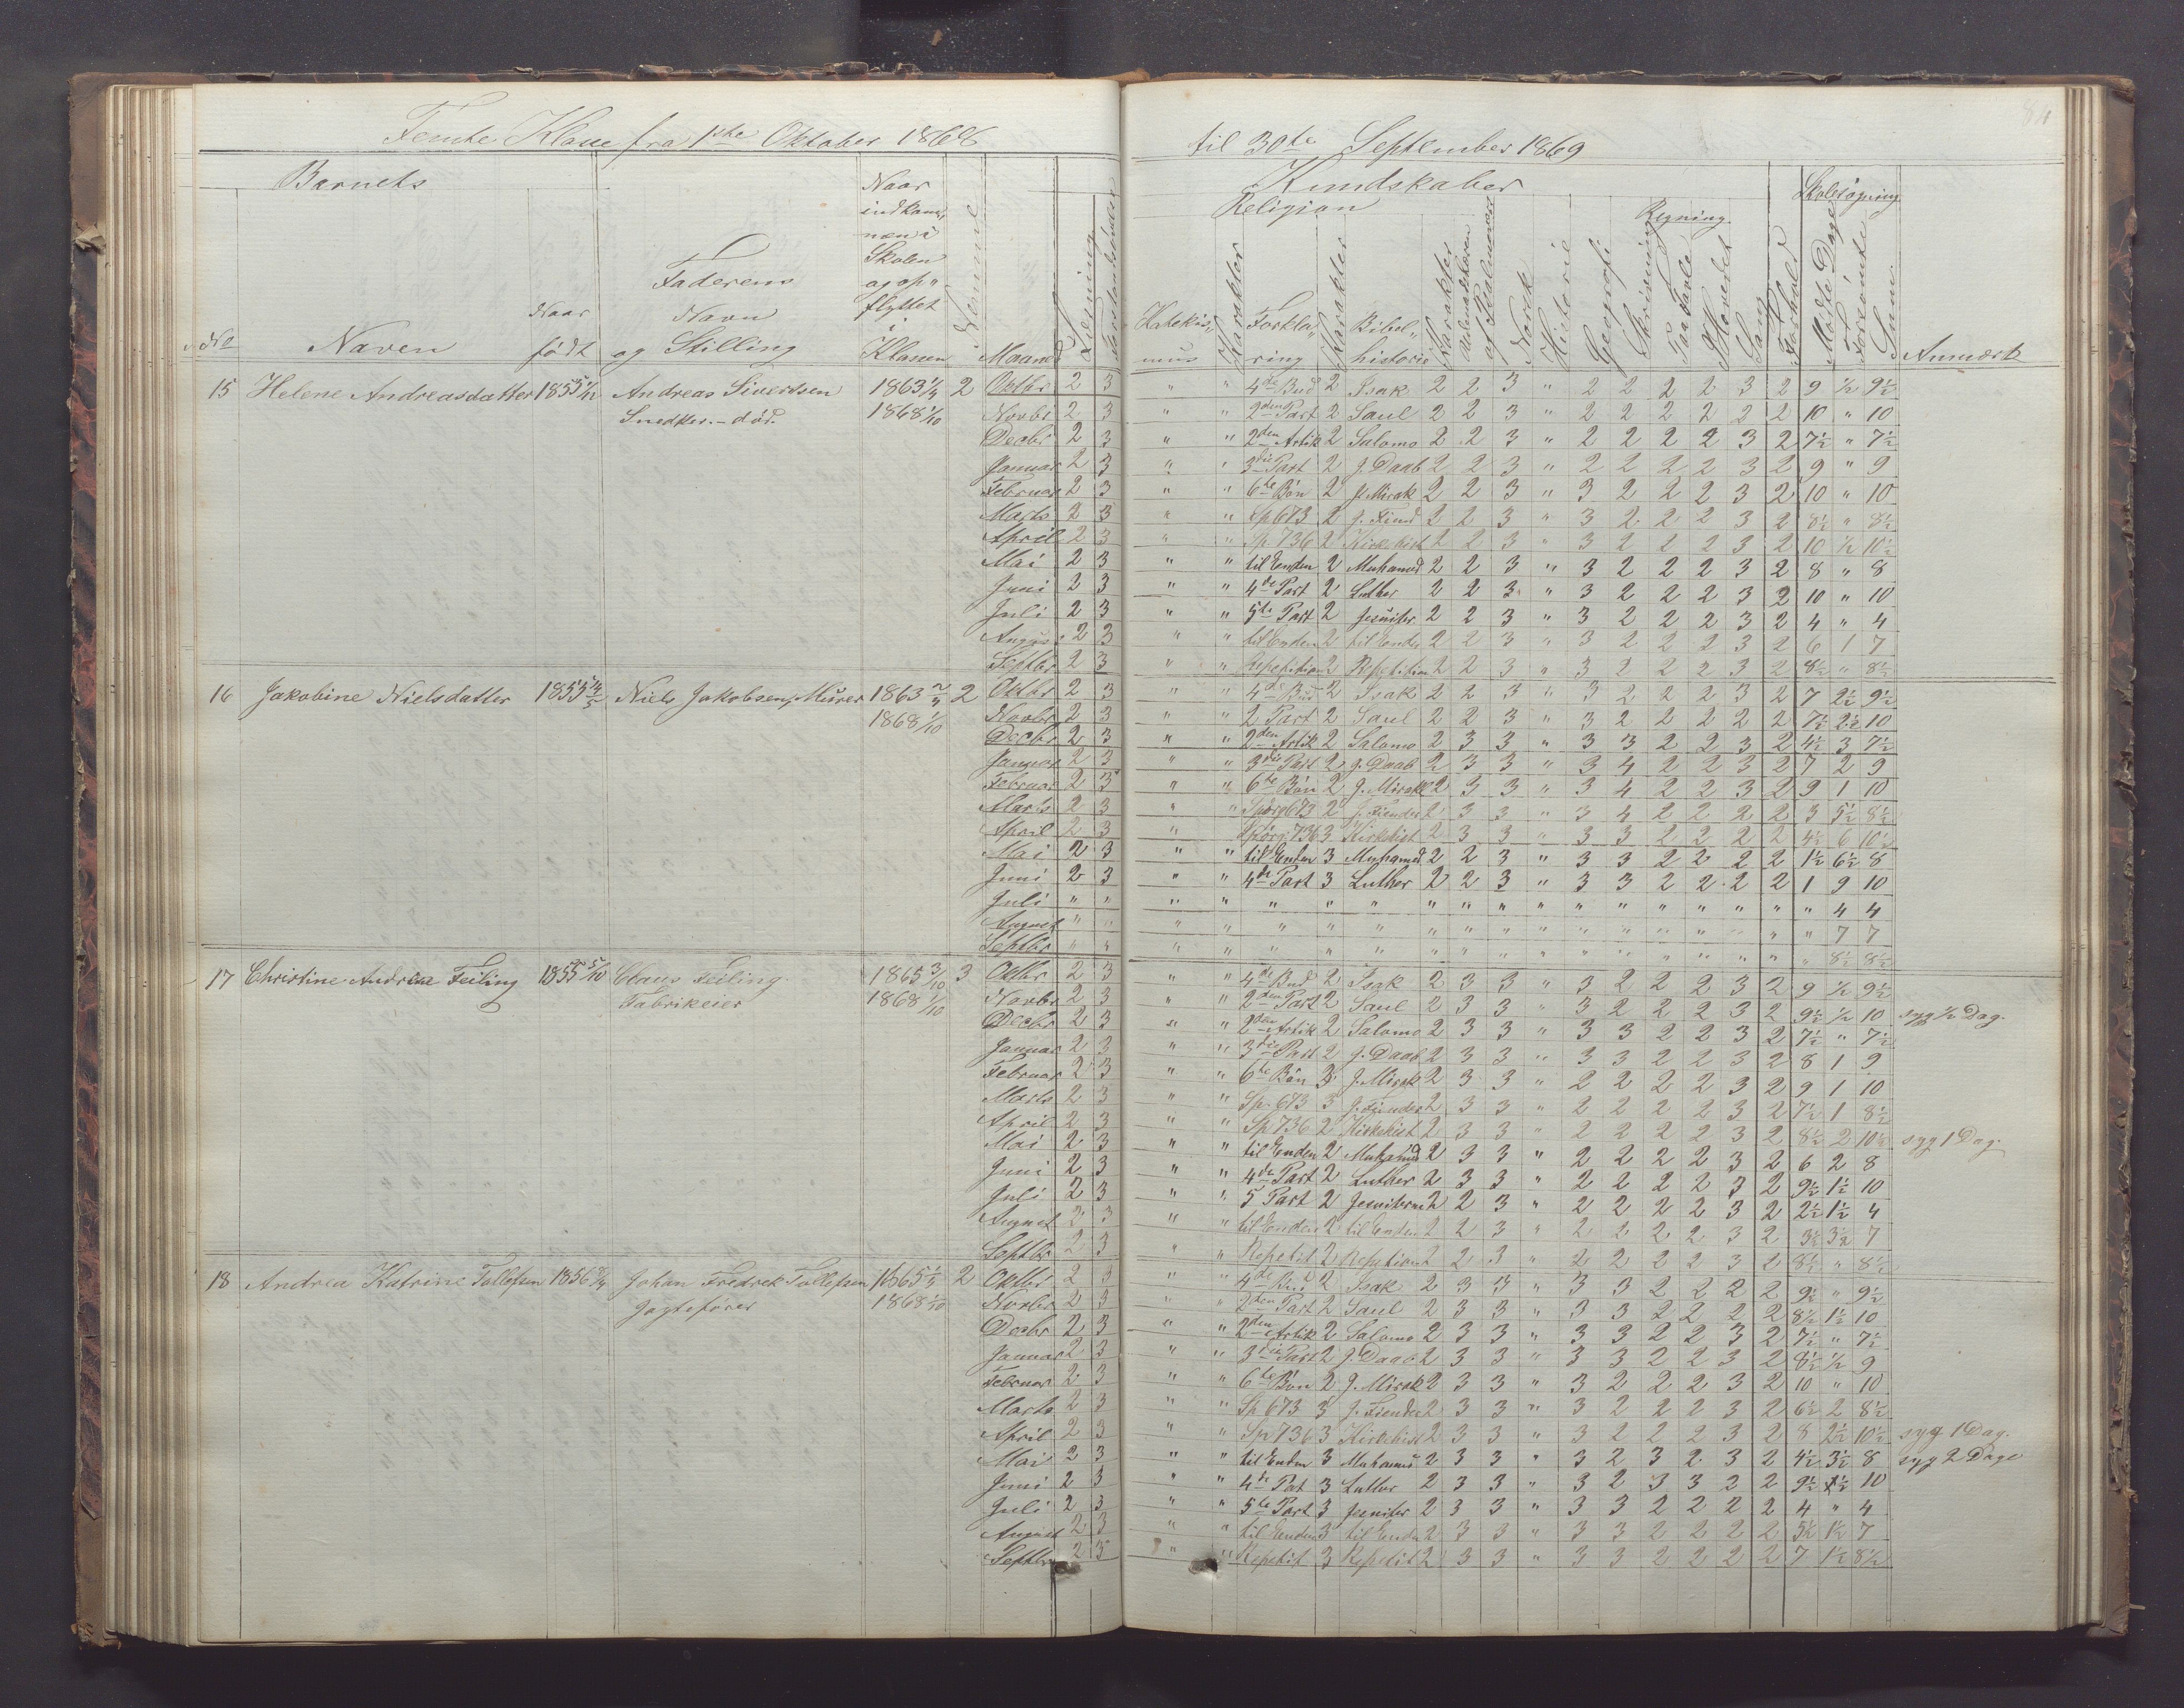 Femte Klasse fra 1ste Oktober 1868 til 30te September 1869
84
Barnets
Kundskaber
Skolesøgning
Religion
Regning
No
Naven
Naar født
Faderens Navn og Stilling
Naar indkommen i Skolen og opflyttet i Klassen
Evnerne
Maaned
Læsning
Forstandsøvelser
Katekismus
Karakter
Forklaring
Karakter
Bibelhistorie
Karakter
Udenadslæren af Psalmevers
Norsk
Historie
Geografi
Skrivning
Paa Tavle
I Hovedet
Sang
Forhold
Mødte Dage
Forsømte
Sum
Anmærk
15 Helene Andreasdatter 1855 Andreas Sivertsen 1863 1/4 2
Snedker. – død. 1868 1/10
Oktbr 2 3 " " 4de Bud 2 Isak 2 2 3 " 2 2 2 2 3 2 9 ½ 9½
Novbr 2 3 " " 2den Part 2 Saul 2 2 3 " 2 2 2 2 2 2 10 " 10
Decbr 2 3 " " 2den Artik 2 Salomo 2 2 3 " 2 2 2 2 3 2 7½ " 7½
Januar 2 3 " " 3die Part 2 J. Daab 2 2 3 " 2 2 2 2 3 2 9 " 9
Februar 2 3 " " 6te Bøn 2 J. Mirak 2 2 3 " 3 2 2 2 3 2 10 " 10
Marts 2 3 " " Sp 673 2 J. Fiend 2 2 3 " 3 2 2 2 3 2 8½ " 8½
April 2 3 " " Sp. 736 2 Kirkehist 2 2 3 " 3 2 2 2 3 2 10 ½ 10½
Mai 2 3 " " til Enden 2 Muhamed 2 2 3 " 3 2 2 2 3 2 8 " 8
Juni 2 3 " " 4de Part 2 Luther 2 2 3 " 3 2 2 2 3 2 10 " 10
Juli 2 3 " " 5te Part 2 Jesuiter 2 2 3 " 3 2 2 2 3 2 4 " 4
August 2 3 " " til Enden 2 til Enden 2 2 3 " 3 2 2 2 3 2 6 1 7
Septbr 2 3 " " Repetition 2 Repetition 2 2 3 " 3 2 2 2 3 2 8½ " 8½
16 Jakobine Nielsdatter 1855 4/5 Niels Jakobsen, Murer 1863 2
1868 1/10
Oktbr 2 3 " " 4de Bud 2 Isak 2 2 3 " 3 2 2 2 3 2 7 2½ 9½
Novbr 2 3 " " 2 Part 2 Saul 2 2 3 " 3 2 2 2 2 2 7½ 2½ 10
Decbr 2 3 " " 2den Artik 2 Salomo 2 3 3 " 3 3 2 2 3 2 4½ 3 7½
Januar 2 3 " " 3die Part 2 J. Daab 2 3 3 " 3 4 2 2 3 2 7 2 9
Februar 2 3 " " 6te Bøn 2 J. Mirakl 2 3 3 " 3 4 2 2 3 2 9 1 10
Marts 2 3 " " Spørg 673 2 J. Fiender 2 3 3 " 3 4 2 2 2 2 3 5½ 8½
April 2 3 " " Spørg. 736 3 Kirkehist 2 3 3 " 3 3 2 2 2 2 4½ 6 10½
Mai 2 3 " " til Enden 3 Muhamed 2 2 3 " 3 3 2 2 2 2 1½ 6½ 8
Juni 2 3 " " 4de Part 3 Luther 2 2 3 " 3 3 2 2 2 2 1 9 10
Juli " " " " " " " " " " " " " " " " " " 4 4
August " " " " " " " " " " " " " " " " " " 7 7
Septbr " " " " " " " " " " " " " " " " " " 8½ 8½
17 Christine Andrea Feiling 1855 5/10 Claus Feiling 1865 3/10 3
Fabrikeier 1868 1/10
Oktbr 2 3 " " 4de Bud 2 Isak 2 3 3 " 3 2 2 2 3 2 9 ½ 9½
Novbr 2 3 " " 2den Part 2 Saul 2 3 3 " 3 2 2 2 3 2 9½ ½ 10 syg ½ Dag.
Decbr 2 3 " " 2den Artik 2 Salomo 2 3 3 " 3 3 2 2 3 2 7½ " 7½
Januar 2 3 " " 3die Part 2 J. Daab 2 3 3 " 3 3 2 2 3 2 8 1 9
Februar 2 3 " " 6te Bøn 3 J. Mirak 2 3 3 " 2 2 2 2 3 2 9 1 10
Marts 2 3 " " Sp. 673 3 J. Fiender 2 3 3 " 2 2 2 2 3 2 7½ 1 8½
April 2 3 " " Sp 736 2 Kirkehist 2 3 3 " 2 2 2 2 3 2 8½ 2 10½ syg 1 Dag.
Mai 2 3 " " til Enden 2 Muhamed 2 3 3 " 2 2 2 2 3 2 6 2 8
Juni 2 3 " " 4de Part 2 Luther 2 3 3 " 2 2 2 2 3 2 9½ 1½ 10
Juli 2 3 " " 5 Part 2 2 2 3 " 2 2 2 2 3 2 2½ 1½ 4
August 2 3 " " til Enden 2 til Enden 2 2 3 " 2 2 2 2 3 2 3½ 3½ 7
Septbr 2 3 " " Repetit 2 Repetition 2 2 3 " 2 2 2 2 3 2 8½ " 8½
18 Andrea Katrine Tollefsen 1856 Johan Fredrek Tollefsen 1865 2
Jagtefører 1868 1/10
Oktbr 2 3 " " 4de Bud 2 Isak 2 3 3 " 3 3 2 2 2 2 9½ " 9½
Novbr 2 3 " " 2den Part 2 Saul 2 3 3 " 3 3 2 2 2 2 8½ 1½ 10
Decbr 2 3 " " 2den Artik 2 Salomo 2 3 3 " 3 3 2 2 3 2 7½ " 7½
Januar 2 3 " " 3die Part 2 J. Daab 2 3 3 " 3 3 2 2 3 2 8½ ½ 9
Februar 2 3 " " 6te Bøn 2 J. Mirak 2 3 3 " 3 2 2 2 3 2 10 " 10
Marts 2 3 " " Sp 673 3 J. Fiender 2 3 3 " 3 2 2 2 3 2 6½ 2 8½
April 2 3 " " Sp 736 3 Kirkehist 2 3 3 " 3 2 2 2 3 2 8 2½ 10½ syg 1 Dag.
Mai 2 3 " " til Enden 3 Muhamed 2 3 3 " 3 2 3 2 3 2 4½ 3½ 8 syg 2 Dage
Juni 2 3 " " 4de Pat 3 Luther 2 3 3 " 3 2 3 3 2 2 9½ ½ 10
Juli 2 3 " " 5te Part 3 Jesuiter 2 3 3 " 3 3 2 2 2 2 4 " 4
August 2 3 " " til Enden 3 til Enden 2 3 3 " 3 3 2 2 2 2 5½ 1½ 7
Septbr 2 3 " " Repetit 3 Repetit 2 3 3 " 3 3 2 2 2 2 7 1½ 8½